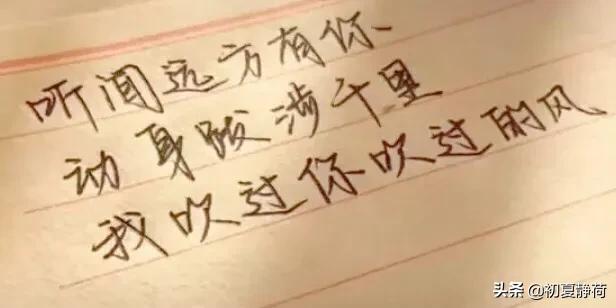 听闻远方有你、
动身跋涉千里
我吹过你吹过的风
头条 @初夏静荷